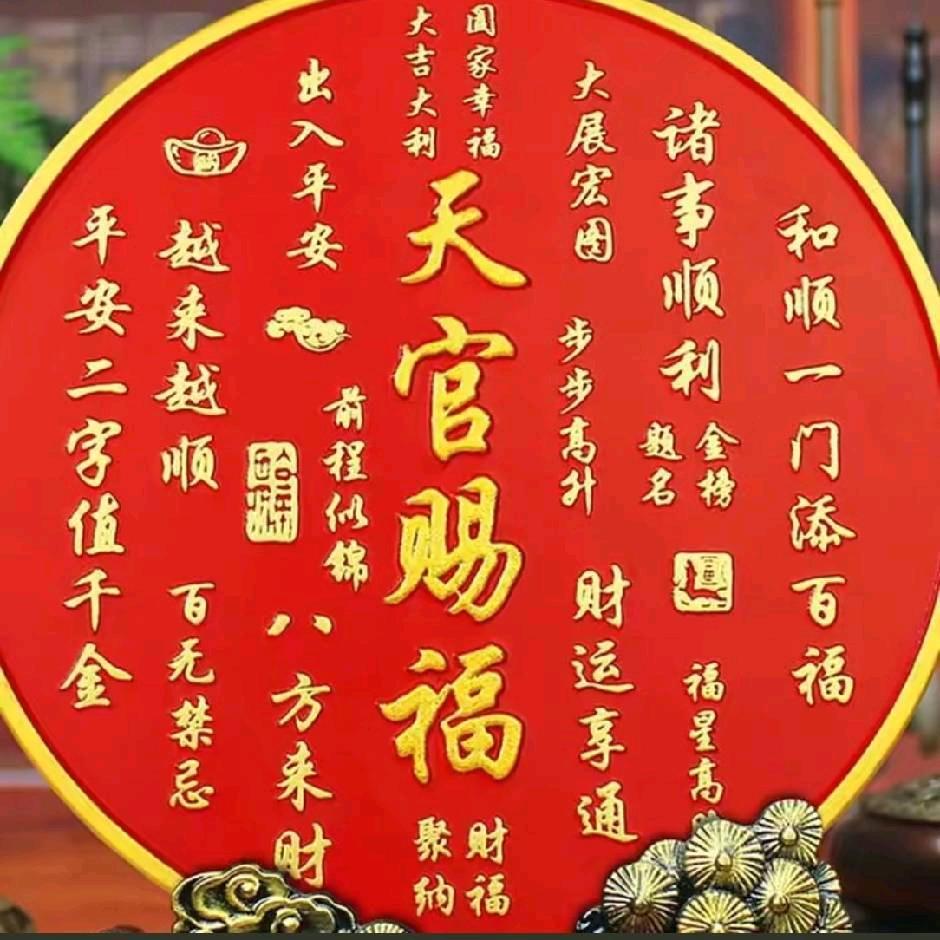 和顺一门添百福
诸事顺利
金榜
题名
福星高
大展宏图
步步高升
财运享通
家幸福
大吉大利
天官赐福
财福
聚纳
出入平安
前程似锦
八方来财
越来越顺
百无禁忌
平安二字值千金